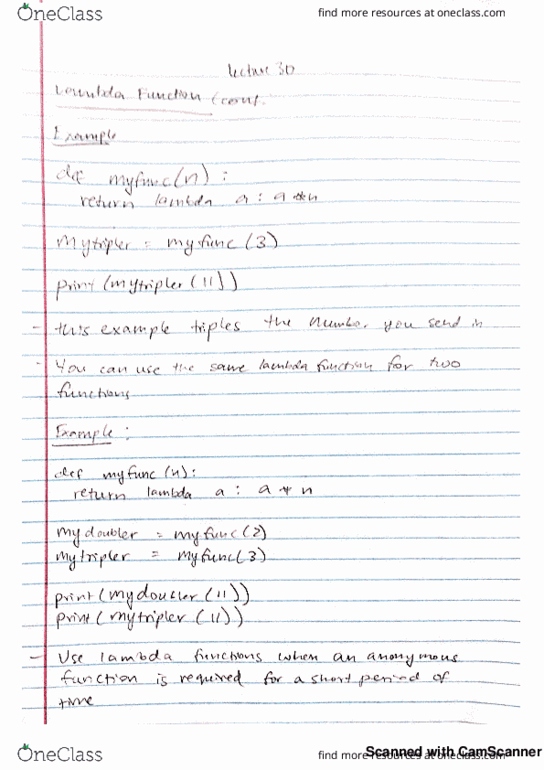 OneClass
find more resources at oneclass.com
Lecture 30
Lambda Function (cont.
Example
def myfunc(n) :
return lambda a : a * n
Mytripler = myfunc (3)
print (mytripler (11))
- this example triples the number you send in
- You can use the same lambda function for two
functions
Example :
def myfunc (n):
return lambda a : a * n
mydoubler = myfunc(2)
mytripler = myfunc(3)
print (mydoubler (11))
print (mytripler (11))
- Use lambda functions when an anonymous
function is required for a short period of
time
OneClass
find more resources at oneclass.com
Scanned with CamScanner